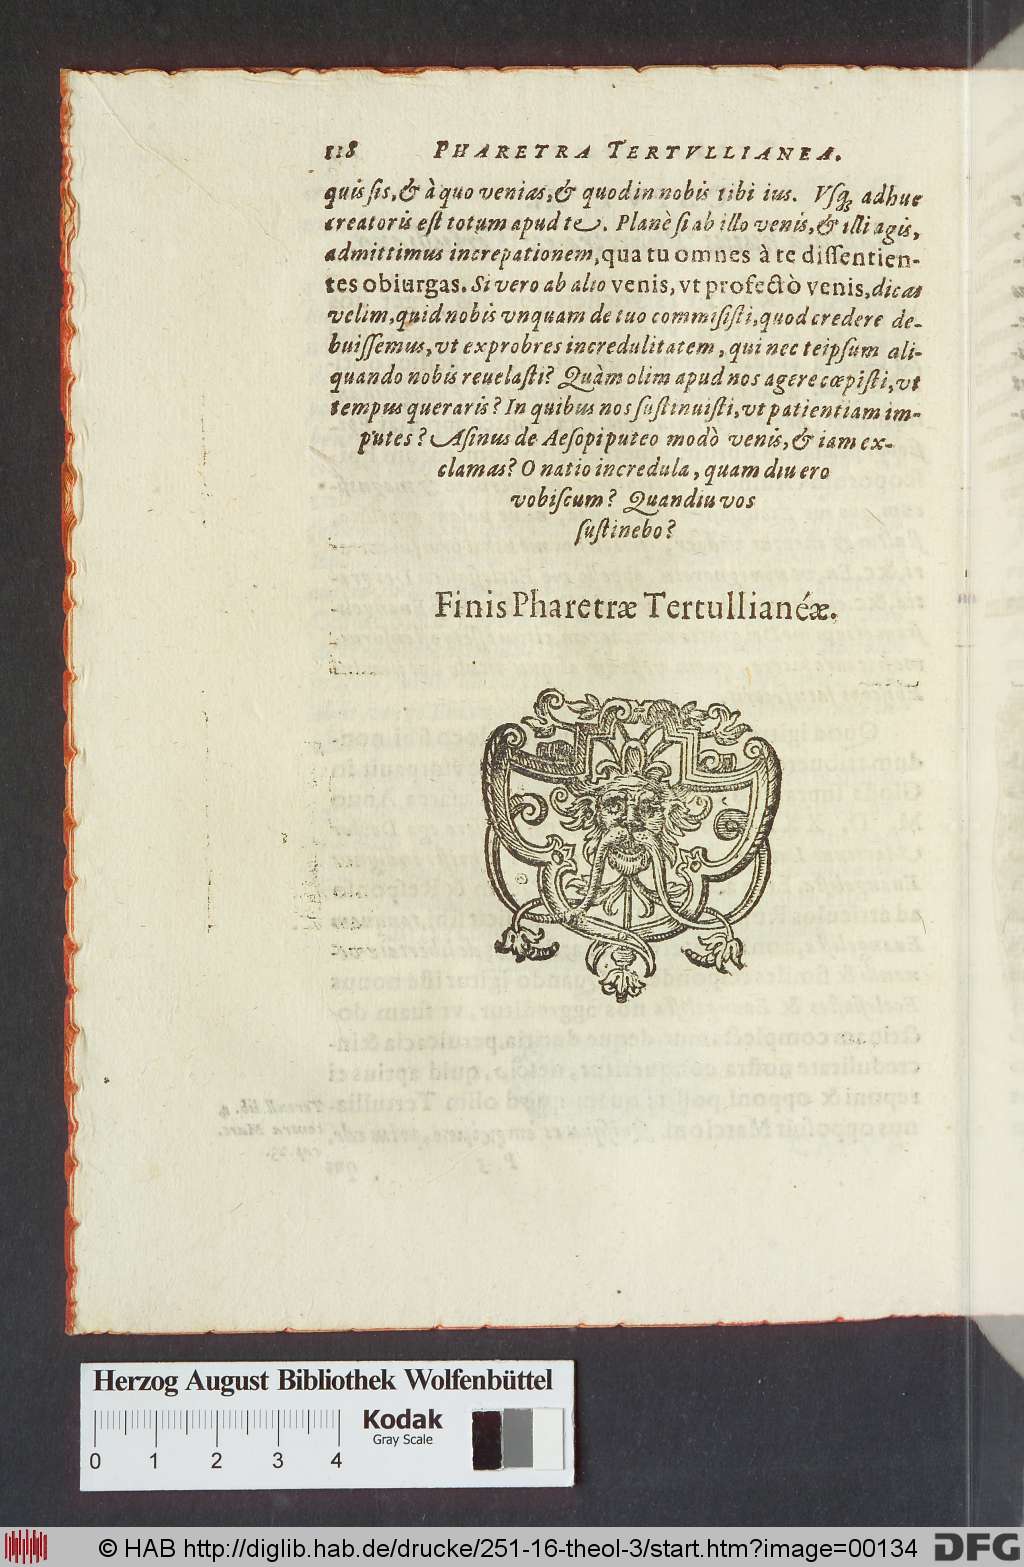 118 PHARETRA TERTVLLIANEA.
quis ſis, & à quo venias, & quod in nobis tibi ius. Vſq; adhuc
creatoris eſt totum apud te. Planè ſi ab illo venis, & illi agis,
admittimus increpationem, qua tu omnes à te diſſentien-
tes obiurgas. Si vero ab alio venis, vt profectò venis, dicas
velim, quid nobis vnquam de tuo commiſiſti, quod credere de-
buiſſemus, vt exprobres incredulitatem, qui nec teipſum ali-
quando nobis reuelaſti? Quàm olim apud nos agere cœpiſti, vt
tempus queraris? In quibus nos ſuſtinuiſti, vt patientiam im-
putes? Aſinus de Aeſopi puteo modò venis, & iam ex-
clamas? O natio incredula, quam diu ero
vobiſcum? Quandiu vos
ſuſtinebo?
Finis Pharetræ Tertullianéæ.
Herzog August Bibliothek Wolfenbüttel
Kodak
Gray Scale
0 1 2 3 4
© HAB http://diglib.hab.de/drucke/251-16-theol-3/start.htm?image=00134
DFG